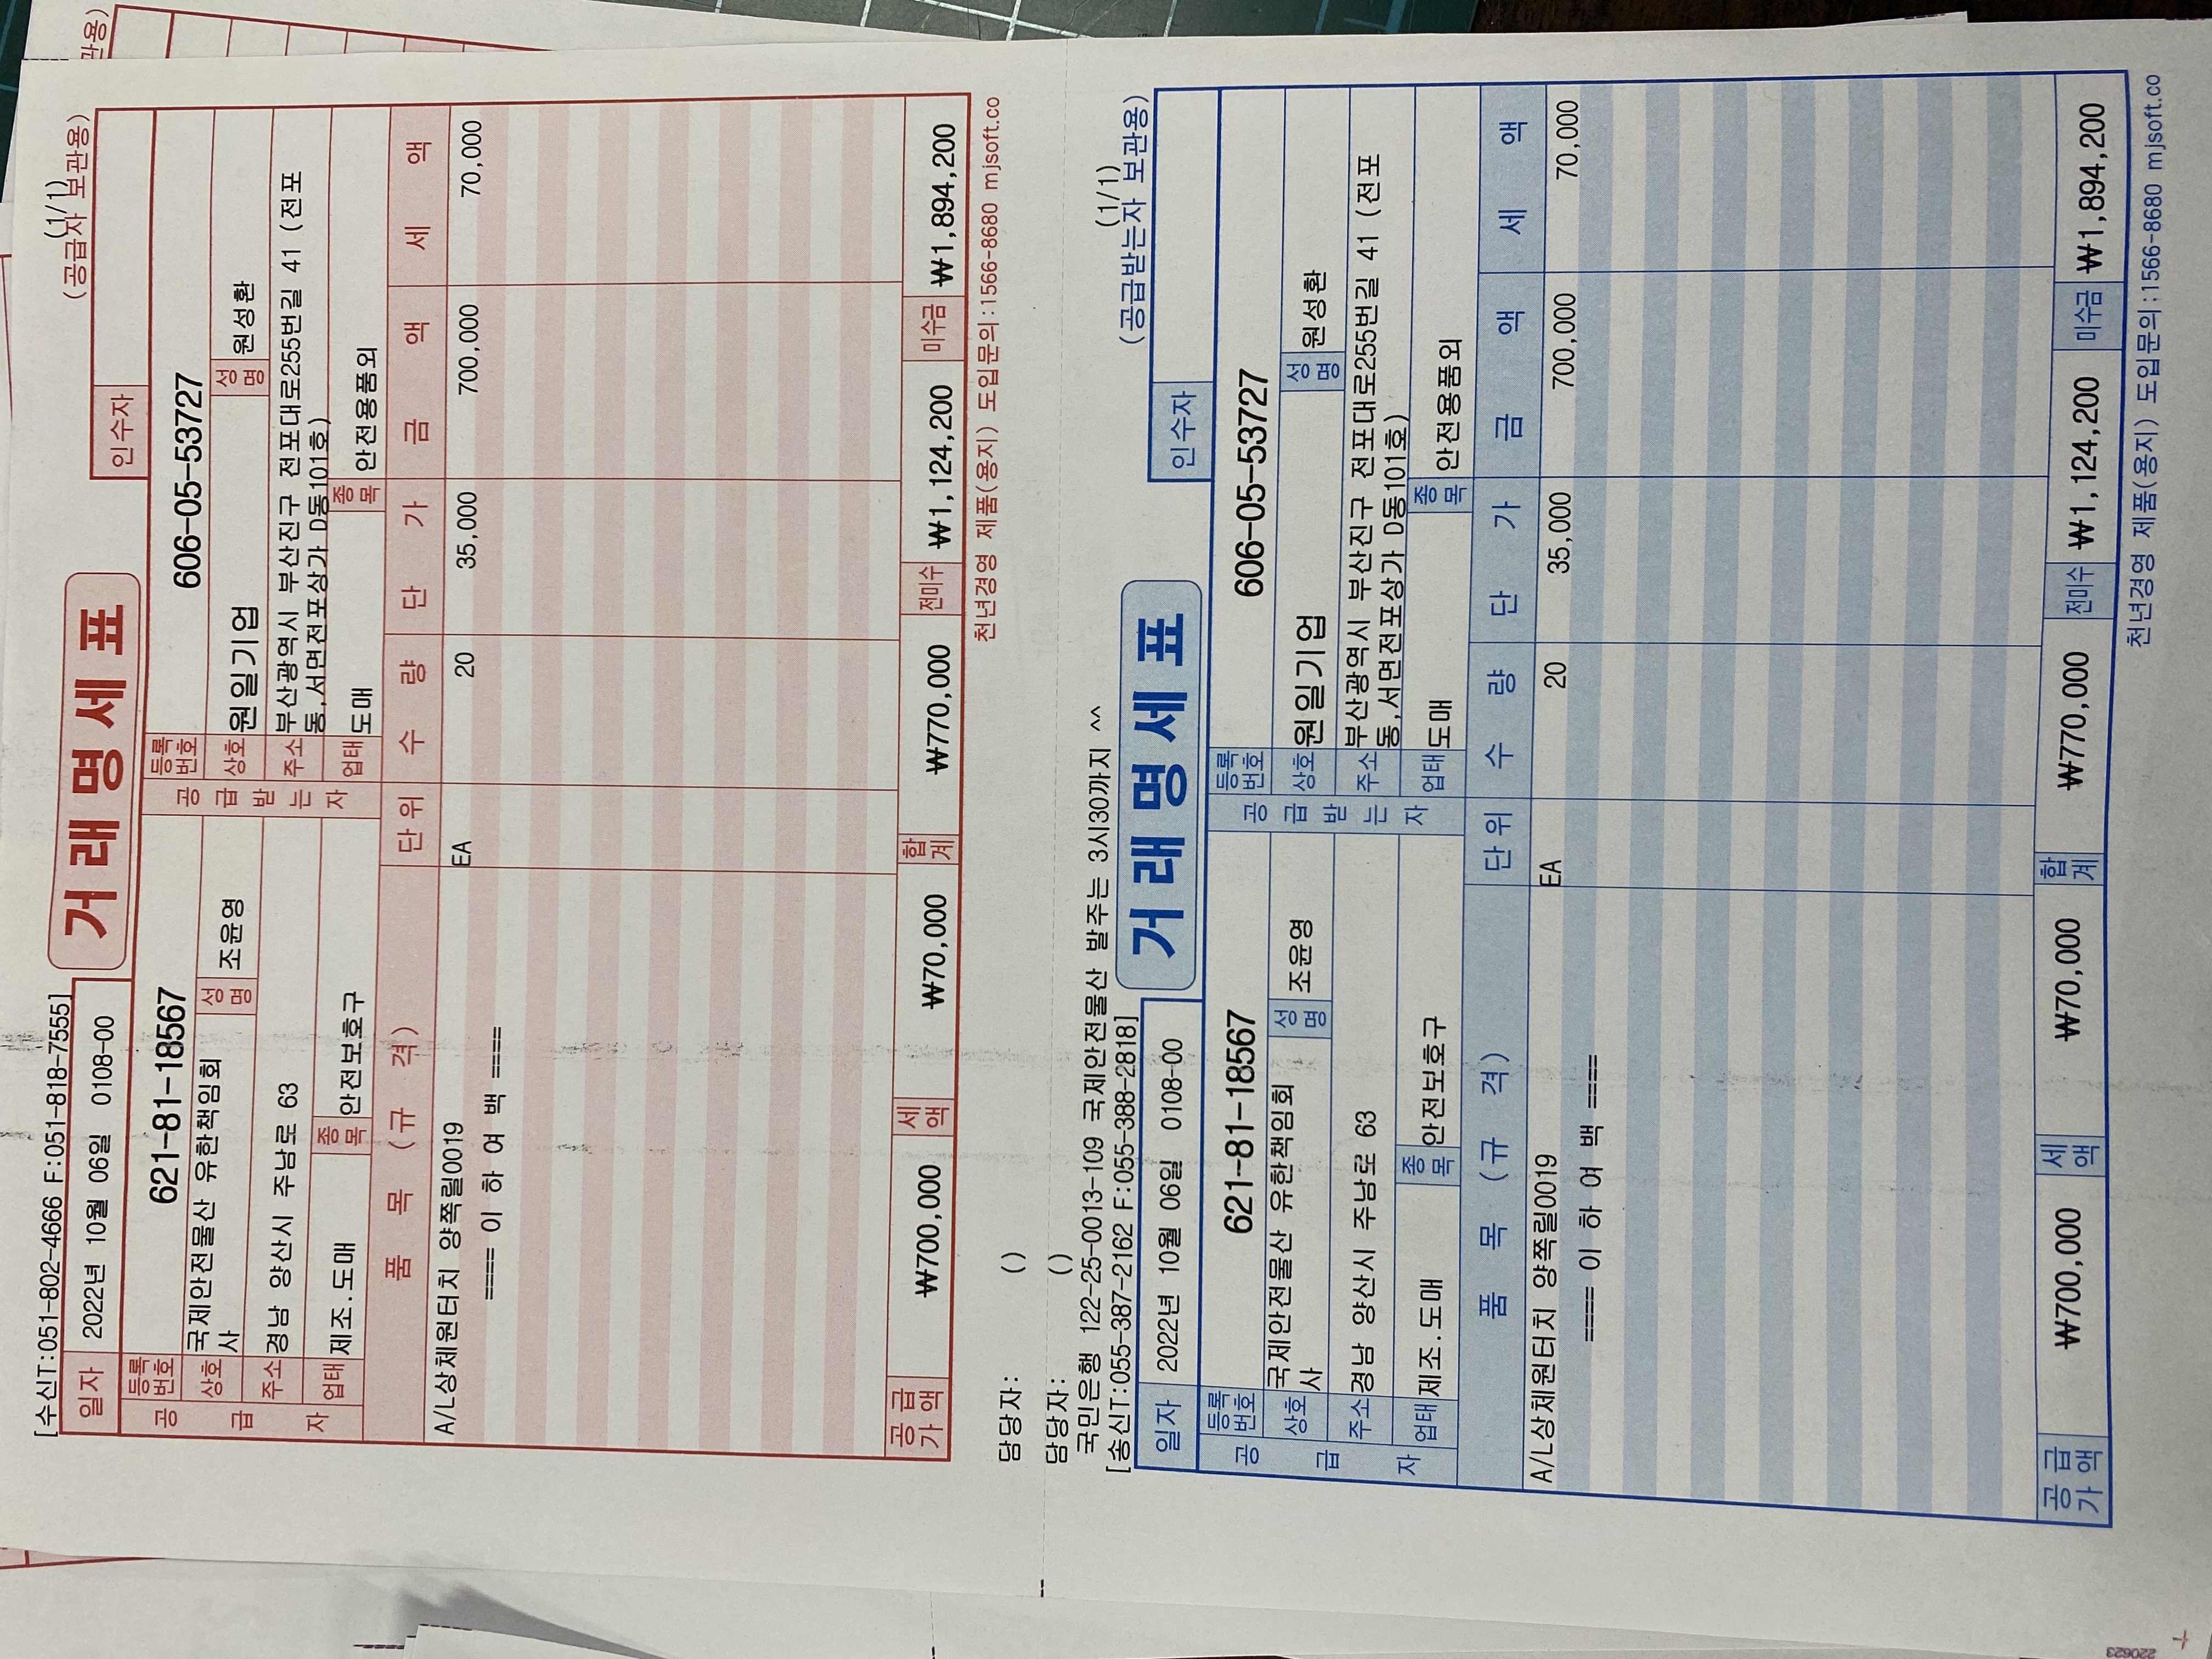 (1/1)
[수신T:051-802-4666 F:051-818-7555]
(공급자 보관용)
거래명세표
일자 2022년 10월 06일 0108-00
인수자
공급자
등록번호 621-81-18567
상호 국제안전물산 유한책임회사
성명 조윤영
주소 경남 양산시 주남로 63
업태 제조.도매
종목 안전보호구
공급받는자
등록번호 606-05-53727
상호 원일기업
성명 원성환
주소 부산광역시 부산진구 전포대로255번길 41 (전포
동,서면전포상가 D동101호)
업태 도매
종목 안전용품외
품 목 (규 격) 단위 수 량 단 가 금 액 세 액
A/L상체원터치 양쪽릴0019 EA 20 35,000 700,000 70,000
==== 이 하 여 백 ====
공급가액 ₩700,000 세액 ₩70,000 합계 ₩770,000 전미수 ₩1,124,200 미수금 ₩1,894,200
천년경영 제품(용지) 도입문의:1566-8680 mjsoft.co
담당자: ()
담당자: ()
국민은행 122-25-0013-109 국제안전물산 발주는 3시30까지 ^^
(1/1)
[송신T:055-387-2162 F:055-388-2818]
(공급받는자 보관용)
거래명세표
일자 2022년 10월 06일 0108-00
인수자
공급자
등록번호 621-81-18567
상호 국제안전물산 유한책임회사
성명 조윤영
주소 경남 양산시 주남로 63
업태 제조.도매
종목 안전보호구
공급받는자
등록번호 606-05-53727
상호 원일기업
성명 원성환
주소 부산광역시 부산진구 전포대로255번길 41 (전포
동,서면전포상가 D동101호)
업태 도매
종목 안전용품외
품 목 (규 격) 단위 수 량 단 가 금 액 세 액
A/L상체원터치 양쪽릴0019 EA 20 35,000 700,000 70,000
==== 이 하 여 백 ====
공급가액 ₩700,000 세액 ₩70,000 합계 ₩770,000 전미수 ₩1,124,200 미수금 ₩1,894,200
천년경영 제품(용지) 도입문의:1566-8680 mjsoft.co
관용)
220623